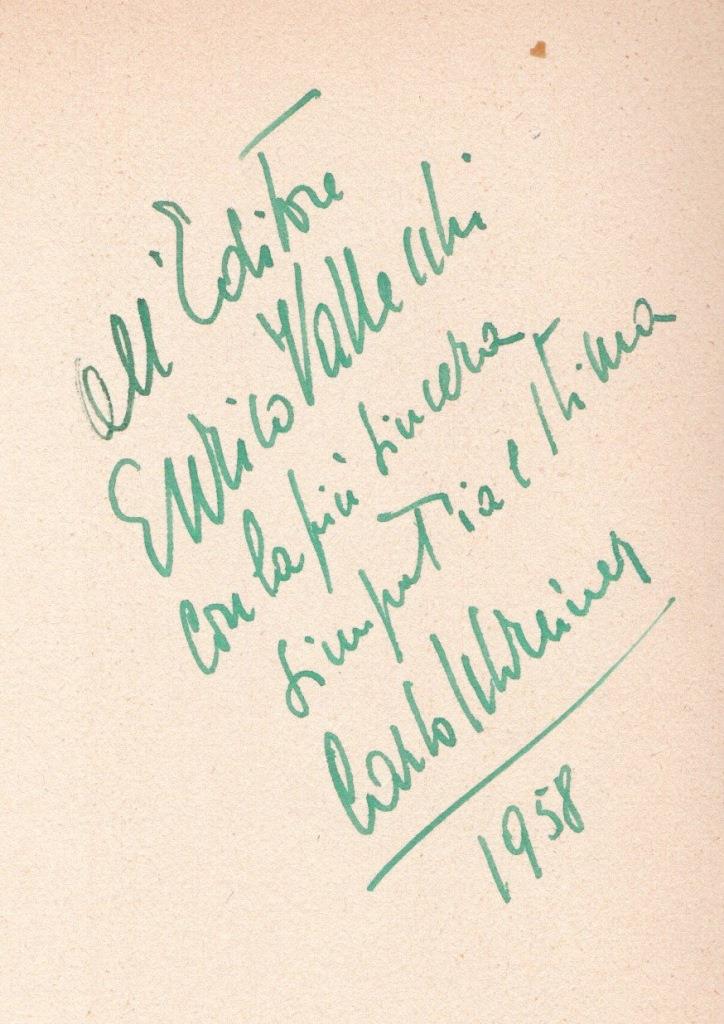 all'Editore
Enrico Vallecchi
con la più sincera
simpatia e stima
Carlo Schreiner
1958